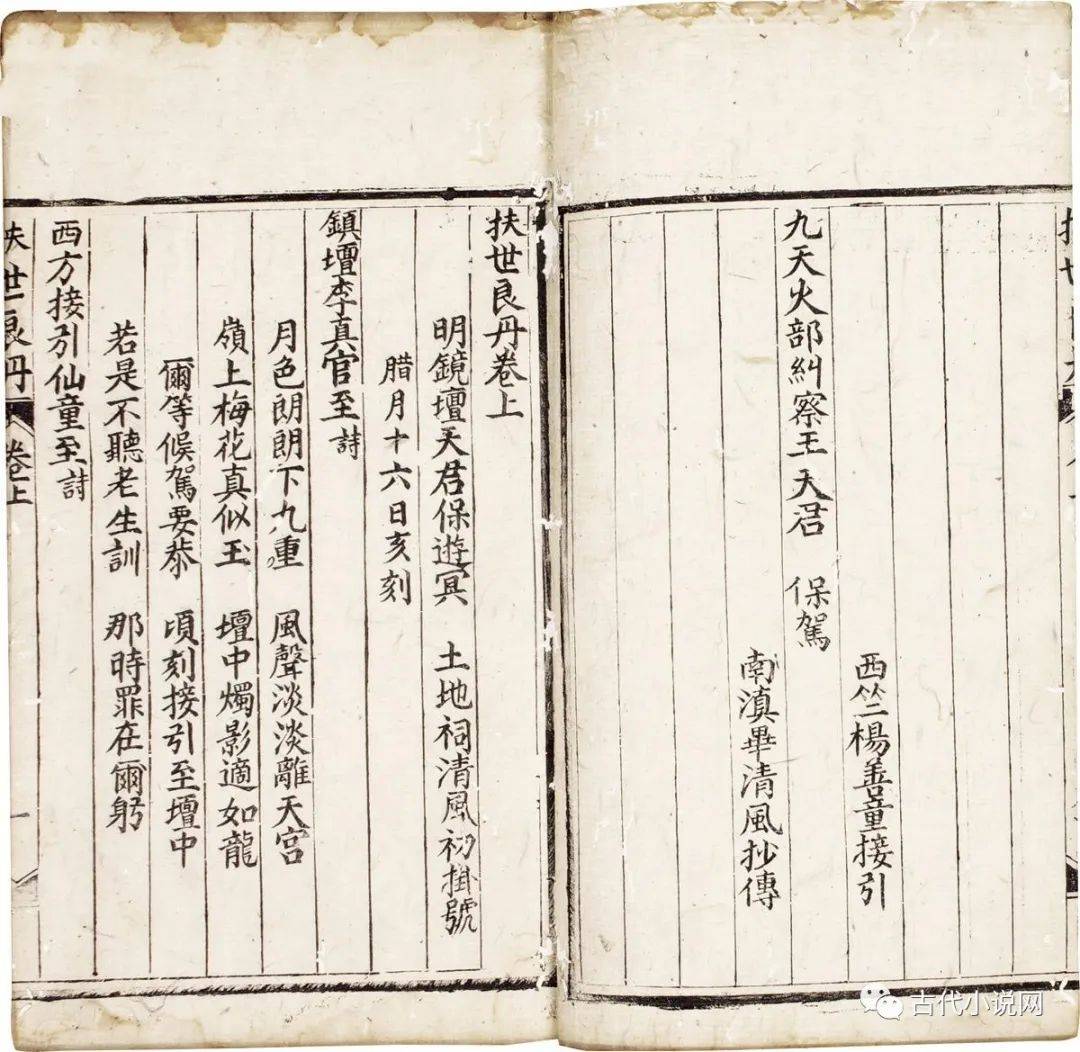 西竺楊善童接引
九天火部糾察王天君　保駕
南滇畢清風抄傳
扶世良丹卷上
明鏡壇天君保遊冥　土地祠清風初掛號
腊月十六日亥刻
鎮壇李真官至詩
月色朗朗下九重　風聲淡淡離天宫
嶺上梅花真似玉　壇中燭影適如龍
爾等候駕要恭　頃刻接引至壇中
若是不聽老生訓　那時罪在爾躬
西方接引仙童至詩
扶世良丹　卷上　一
古代小说网